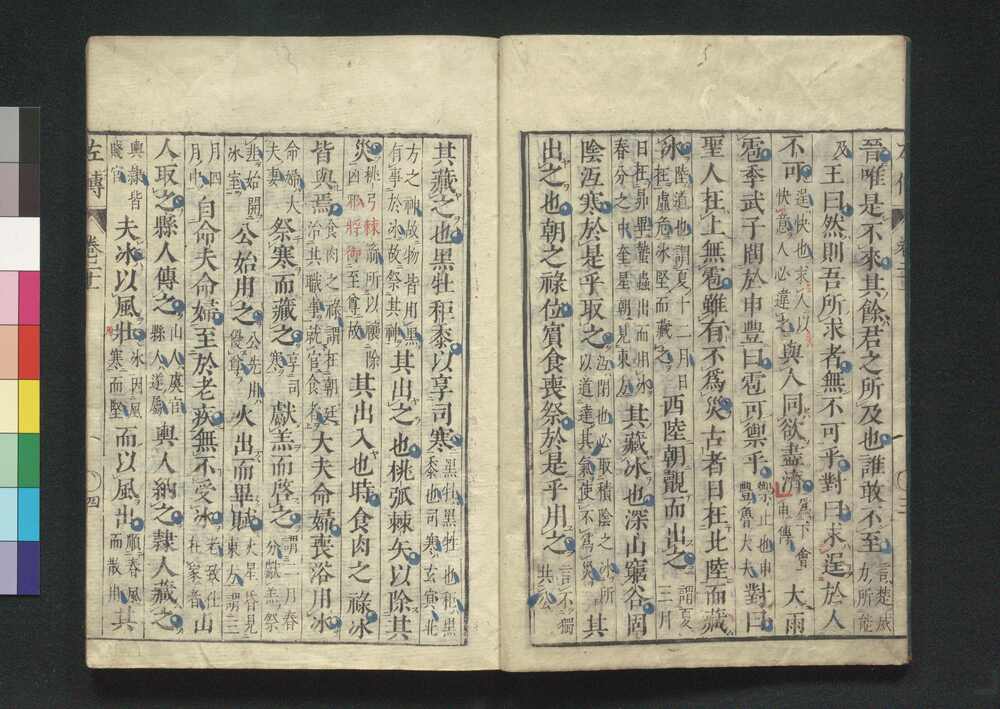 晉唯是不來其餘君之所及也誰敢不至言楚威力所能
及王曰然則吾所求者無不可乎對曰求逞於人
不可逞快也求人以快意人必違之與人同欲盡濟為下會申傳大雨
雹季武子問於申豐曰雹可禦乎禦止也申豐魯大夫對曰
聖人在上無雹雖有不為災古者日在北陸而藏
冰陸道也謂夏十二月日在虛危冰堅而藏之西陸朝覿而出之謂夏三月
日在昴畢蟄蟲出而用冰春分之中奎星朝見東方其藏冰也深山窮谷固
陰沍寒於是乎取之沍閉也必取積陰之冰所以道達其氣使不為災其
出之也朝之祿位賓食喪祭於是乎用之言不獨共公
其藏之也黑牡秬黍以享司寒黑牡黑牲也秬黑黍也司寒玄冥北
方之神故物皆用黑有事於冰故祭其神其出之也桃弧棘矢以除其
災桃弓棘箭所以禳除凶邪將御至尊故其出入也時食肉之祿冰
皆與焉食肉之祿謂在朝廷治其職事就官食者大夫命婦喪浴用冰
命婦大夫妻祭寒而藏之享司寒獻羔而啓之謂二月春分獻羔祭
韭始開冰室公始用之公先用優尊火出而畢賦火星昏見東方謂三
月四月中自命夫命婦至於老疾無不受冰老致仕在家者山
人取之縣人傳之山人虞官縣人遂屬輿人納之隸人藏之
輿隸皆賤官夫冰以風壯冰因風寒而堅而以風出順春風而散用其
左傳
四